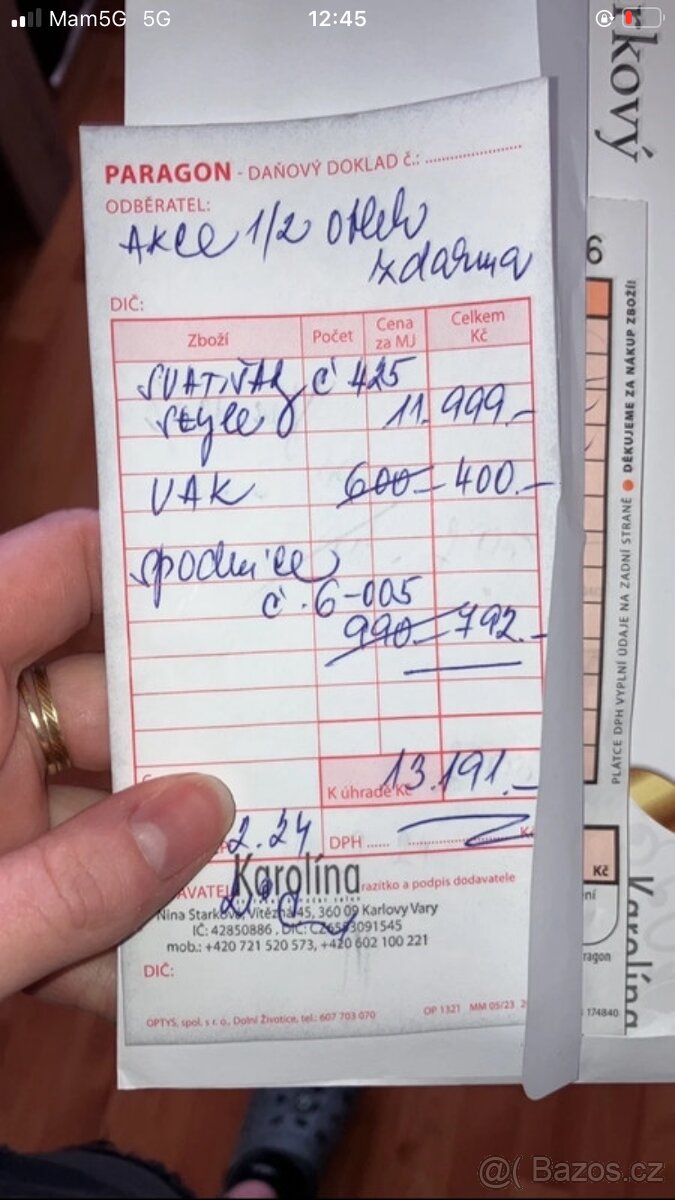 Mam5G 5G 12:45
rkový
PARAGON - DAŇOVÝ DOKLAD č.:
ODBĚRATEL:
AKCE 1/2
zdarma
DIČ:
Zboží Počet Cena za MJ Celkem Kč
č 425
Style 11.999.-
VAK 600.- 400.-
spodnice
č. 6-005
990.- 792.-
K úhradě Kč 13.191.-
2.24 DPH ......
Karolína
razítko a podpis dodavatele
Vítězná 45, 360 09 Karlovy Vary
IČ: 42850886, DIČ:
mob.: +420 721 520 573, +420 602 100 221
DIČ:
OPTYS, spol. s r. o., Dolní Životice, tel.: 607 703 070 OP 1321 MM 05/23
6
DĚKUJEME ZA NÁKUP ZBOŽÍ!
PLÁTCE DPH VYPLNÍ ÚDAJE NA ZADNÍ STRANĚ
Kč
ení
aragon
174840
Karolína
@( Bazos.cz